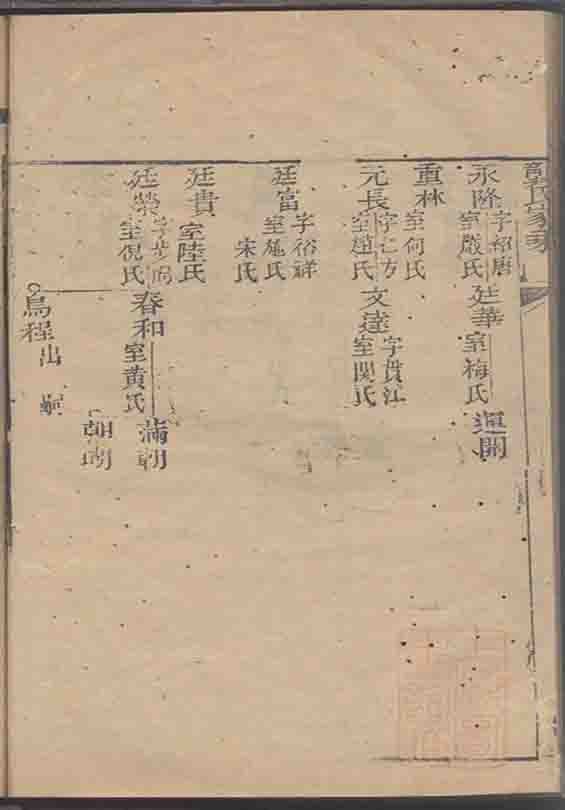 氏家
永隆 字紹唐 室嚴氏 廷華 室梅氏 運開
重林 室何氏
元長 字仁方 室趙氏 文達 字貫江 室関氏
廷富 字裕祥 室施氏 宋氏
廷貴 室陸氏
廷榮 室倪氏 春和 室黄氏 滿朝
朝
烏程 出嗣